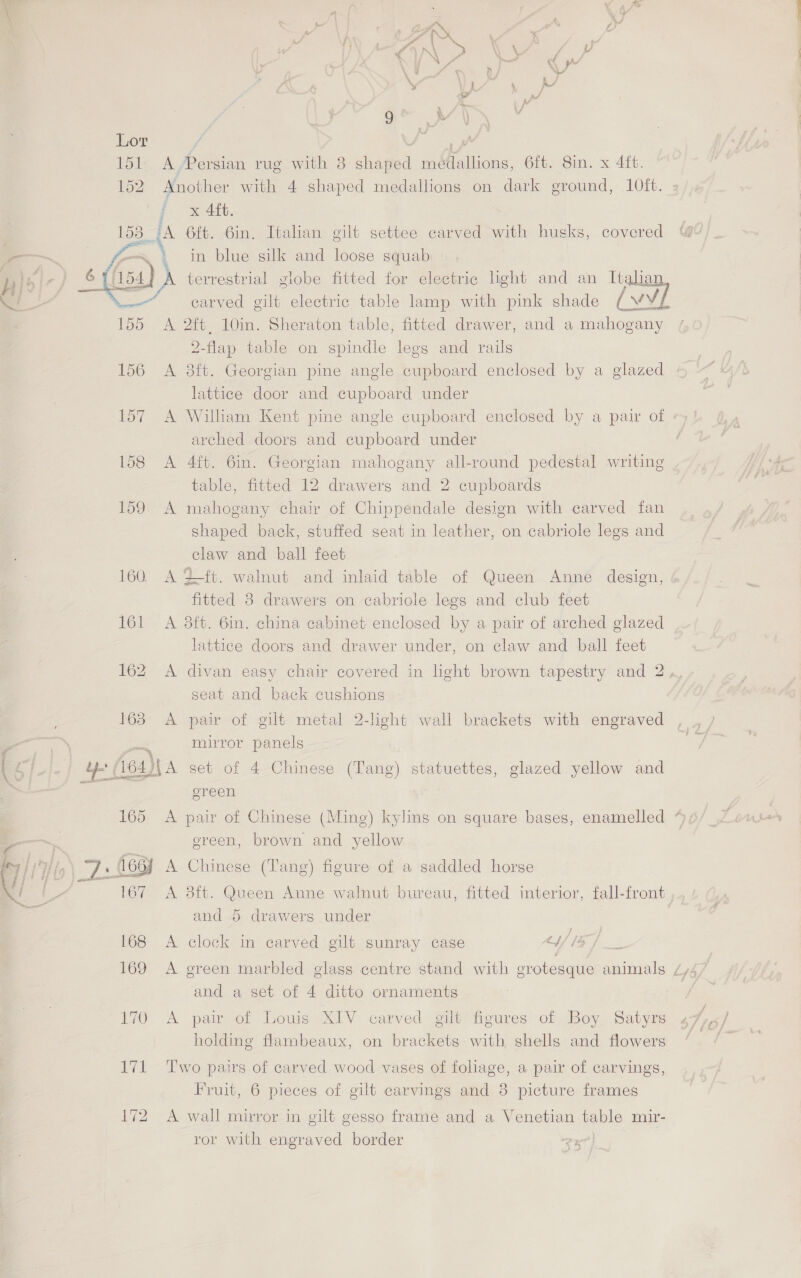 9
Lot
151 A Persian rug with 3 shaped medallions, 6ft. 8in. x 4ft.
152 Another with 4 shaped medallions on dark ground, 10ft.
x 4ft.
153 A 6ft. 6in. Italian gilt settee carved with husks, covered
in blue silk and loose squab
6 154 A terrestrial globe fitted for electric light and an Italian
carved gilt electric table lamp with pink shade
155 A 2ft. 10in. Sheraton table, fitted drawer, and a mahogany
2-flap table on spindle legs and rails
156 A 3ft. Georgian pine angle cupboard enclosed by a glazed
lattice door and cupboard under
157 A William Kent pine angle cupboard enclosed by a pair of
arched doors and cupboard under
158 A 4ft. 6in. Georgian mahogany all-round pedestal writing
table, fitted 12 drawers and 2 cupboards
159 A mahogany chair of Chippendale design with carved fan
shaped back, stuffed seat in leather, on cabriole legs and
claw and ball feet
160 A ft. walnut and inlaid table of Queen Anne design,
fitted 3 drawers on cabriole legs and club feet
161 A 3ft. 6in. china cabinet enclosed by a pair of arched glazed
lattice doors and drawer under, on claw and ball feet
162 A divan easy chair covered in light brown tapestry and 2
seat and back cushions
163 A pair of gilt metal 2-light wall brackets with engraved
mirror panels
164 A set of 4 Chinese (Tang) statuettes, glazed yellow and
green
165 A pair of Chinese (Ming) kylins on square bases, enamelled
green, brown and yellow
7. 166 A Chinese (Tang) figure of a saddled horse
167 A 3ft. Queen Anne walnut bureau, fitted interior, fall-front
and 5 drawers under
168 A clock in carved gilt sunray case
169 A green marbled glass centre stand with grotesque animals
and a set of 4 ditto ornaments
170 A pair of Louis XIV carved gilt figures of Boy Satyrs
holding flambeaux, on brackets with shells and flowers
171 Two pairs of carved wood vases of foliage, a pair of carvings,
Fruit, 6 pieces of gilt carvings and 3 picture frames
172 A wall mirror in gilt gesso frame and a Venetian table mir-
ror with engraved border